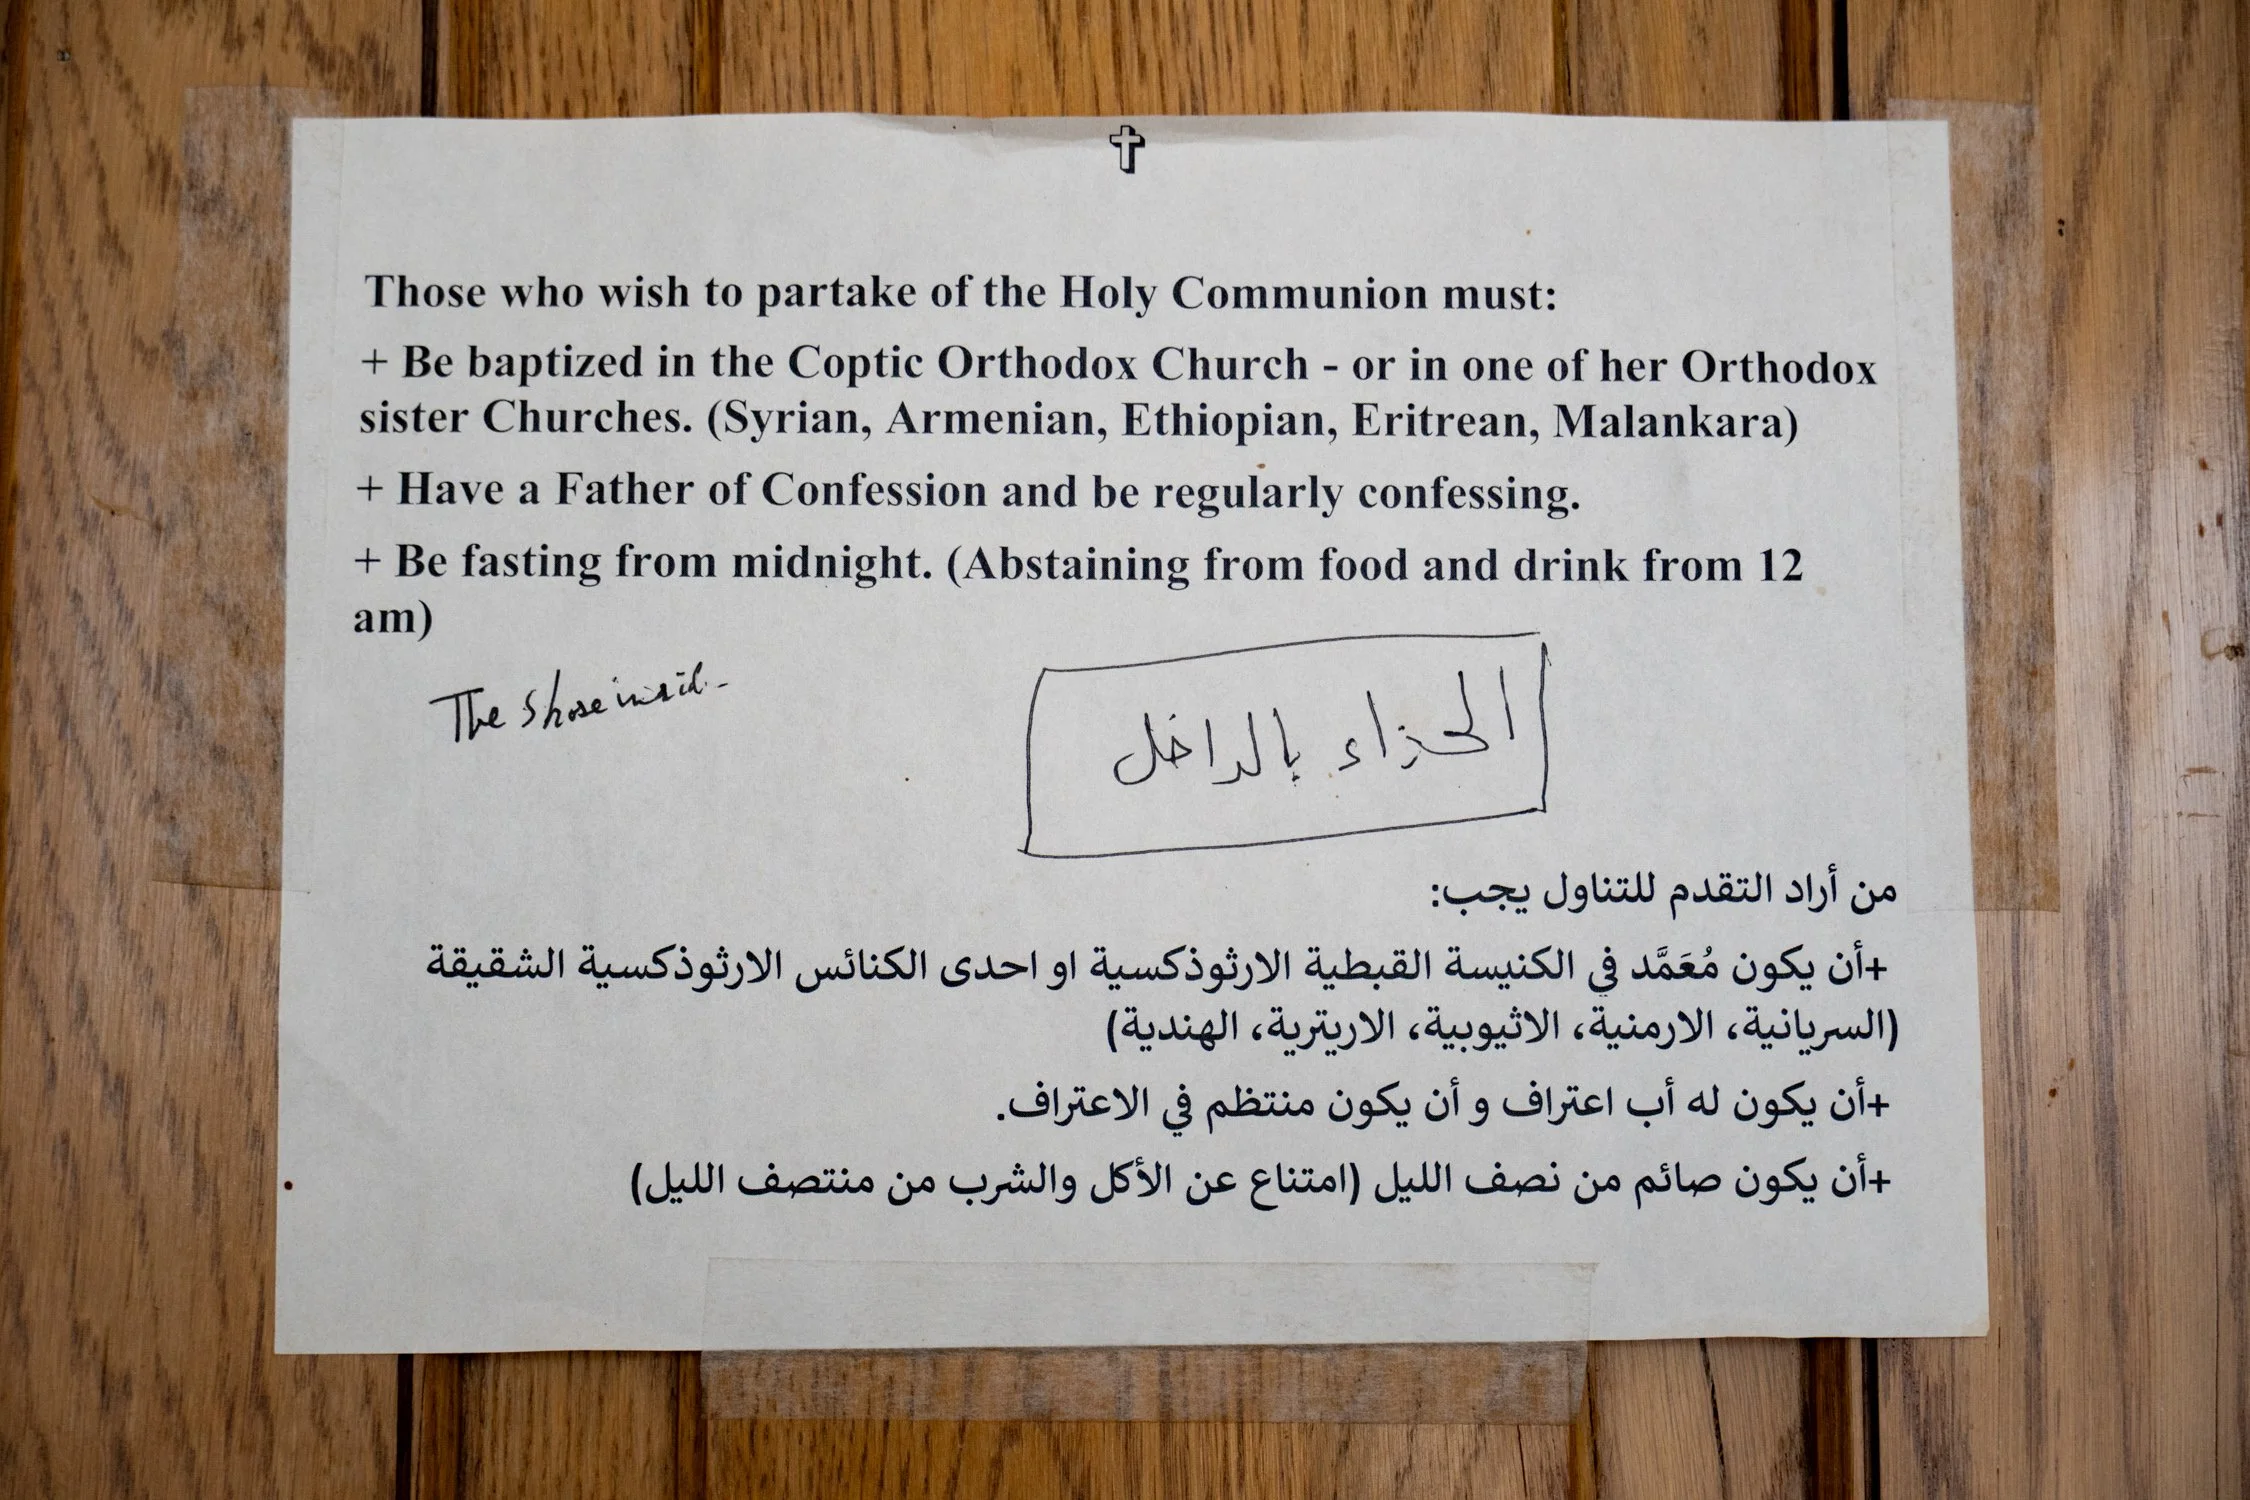 Those who wish to partake of the Holy Communion must:
+ Be baptized in the Coptic Orthodox Church - or in one of her Orthodox
sister Churches. (Syrian, Armenian, Ethiopian, Eritrean, Malankara)
+ Have a Father of Confession and be regularly confessing.
+ Be fasting from midnight. (Abstaining from food and drink from 12
am)
The shose
الحذاء بالداخل
من أراد التقدم للتناول يجب:
+أن يكون مُعَمَّد في الكنيسة القبطية الارثوذكسية او احدى الكنائس الارثوذكسية الشقيقة
(السريانية، الارمنية، الاثيوبية، الاريترية، الهندية)
+أن يكون له أب اعتراف و أن يكون منتظم في الاعتراف.
+أن يكون صائم من نصف الليل (امتناع عن الأكل والشرب من منتصف الليل)